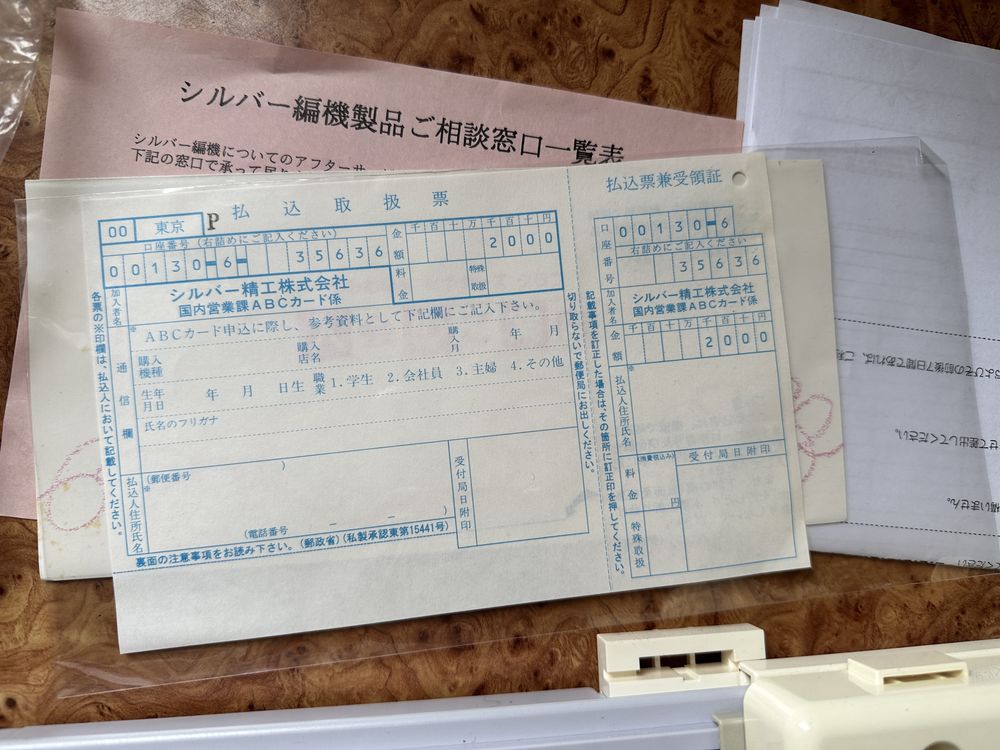 シルバー編機製品ご相談窓口一覧表
シルバー編機についてのアフターサー
下記の窓口で承って
払込取扱票
00 東京 P
口座番号(右詰めにご記入ください)
00130-6- 35636
金額
千百十万千百十円
2000
料金
特殊取扱
加入者名
シルバー精工株式会社
国内営業課ABCカード係
※
ABCカード申込に際し、参考資料として下記欄にご記入下さい。
通信欄
購入機種
購入店名
購入月 年 月
生年月日 年 月 日生
職業 1.学生 2.会社員 3.主婦 4.その他
氏名のフリガナ
払込人住所氏名
(郵便番号 )
※
(電話番号 ― ― )
受付局日附印
裏面の注意事項をお読み下さい。(郵政省)(私製承認東第15441号)
各票の※印欄は、払込人において記載してください。
切り取らないで郵便局にお出しください。
記載事項を訂正した場合は、その箇所に訂正印を押してください。
払込票兼受領証
口座番号
00130-6
右詰めにご記入ください
35636
加入者名
シルバー精工株式会社
国内営業課ABCカード係
金額
千百十万千百十円
2000
払込人住所氏名
※
料金
(消費税込み)
円
特殊取扱
受付局日附印
およびその前後7日間であれば、ご利
せて提出してください。
いません。